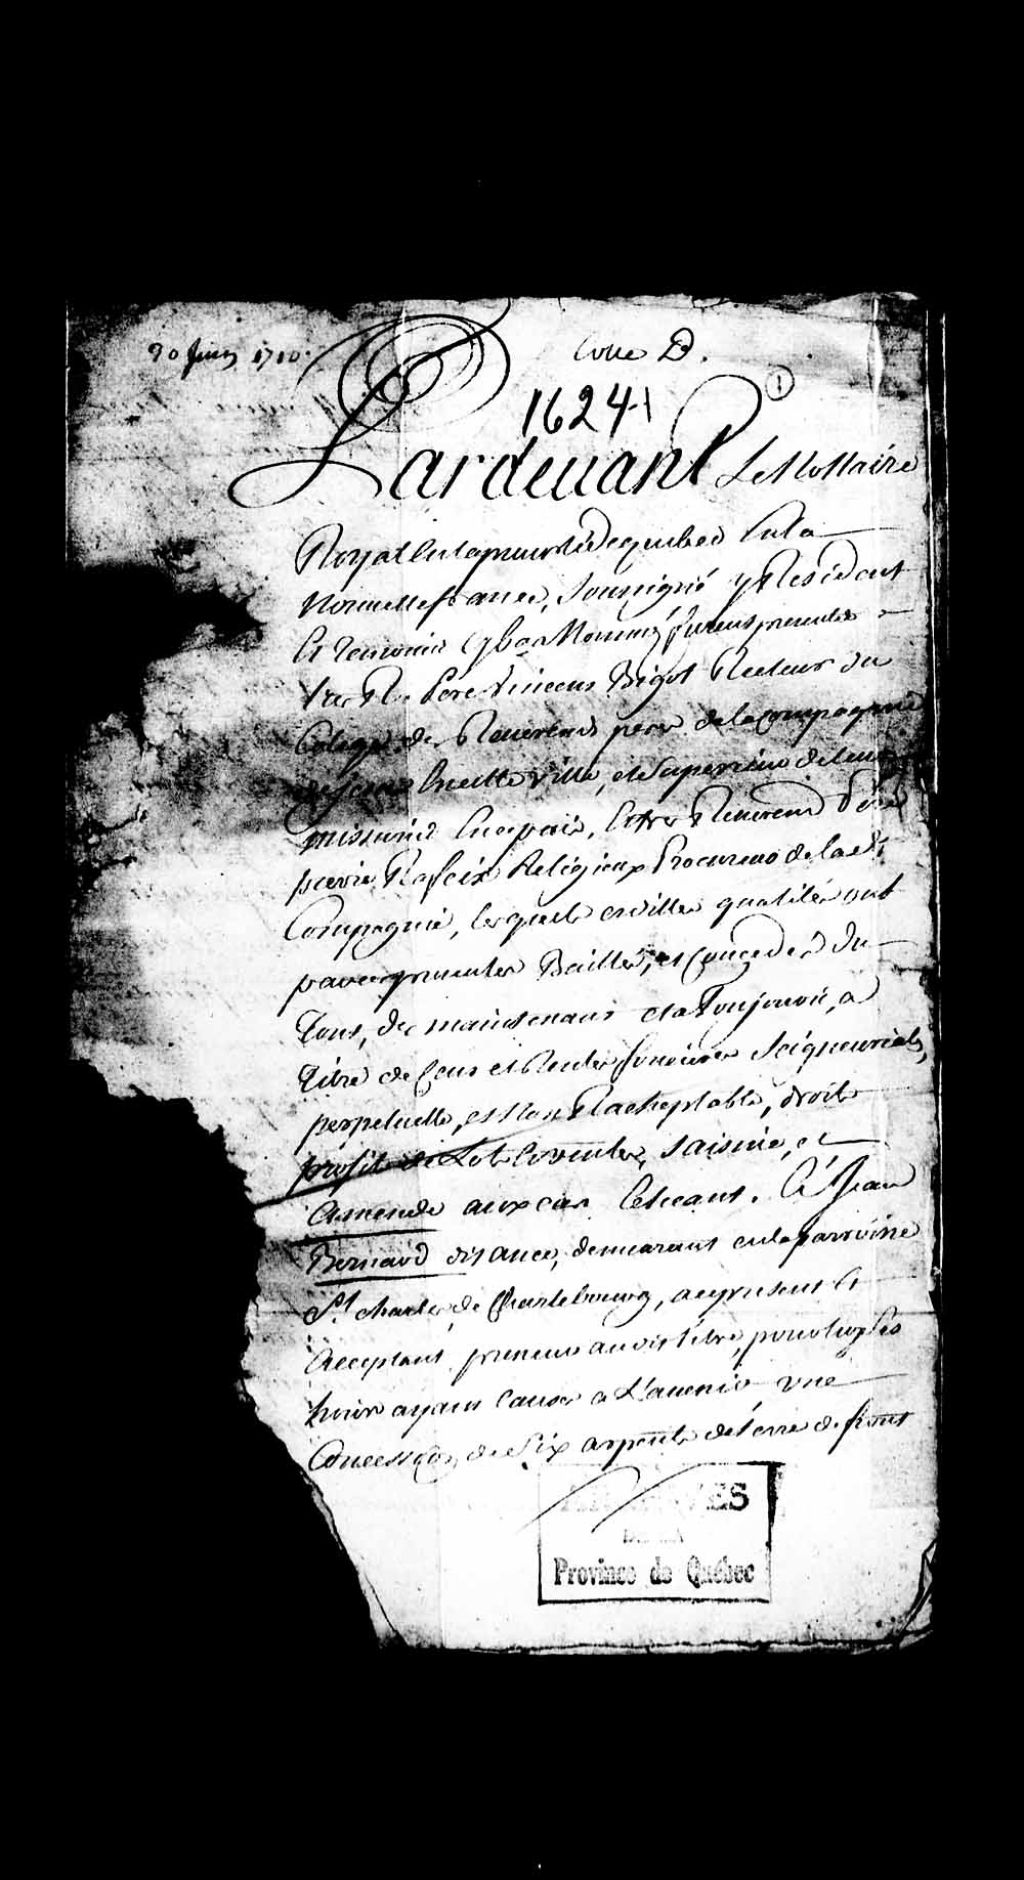 30 Juin 1710.
Cotte D.
1
16241
Pardeuant Le Nottaire
Royal En la preuosté de quebec En la
Nouuelle france, Soussigné y Residant
Et Temoins Cy bas Nommez furent presents
Tres R. Pere Vincent Bigot Recteur du
Colege des Reuerends peres de la Compagnie
de Jesus En cette Ville, et Superieur de leurs
missions En ce païs, Et le Reuerend Pere
pierre Rafeix Religieux Procureur de lad.
Compagnie, lesquels esdittes qualités ont
par ces presentes Baillés, et Concedés du
Tout, des maintenant et a Toujours, a
Titre de Cens et Rentes foncieres Seigneurialles,
perpetuelle, et Non Racheptable, droit
profit de Lots Et ventes, Saisine, et
Amende aux cas Escheant. A Jean
Bernard dit ance, demeurant en la parroisse
St. charles de Charlebourg, a ce present Et
Acceptant preneur audit titre, pour luy ses
hoirs ayans Cause a L'auenir vne
Concession de Six arpents de terre de front
ES
DE LA
Province de Québec